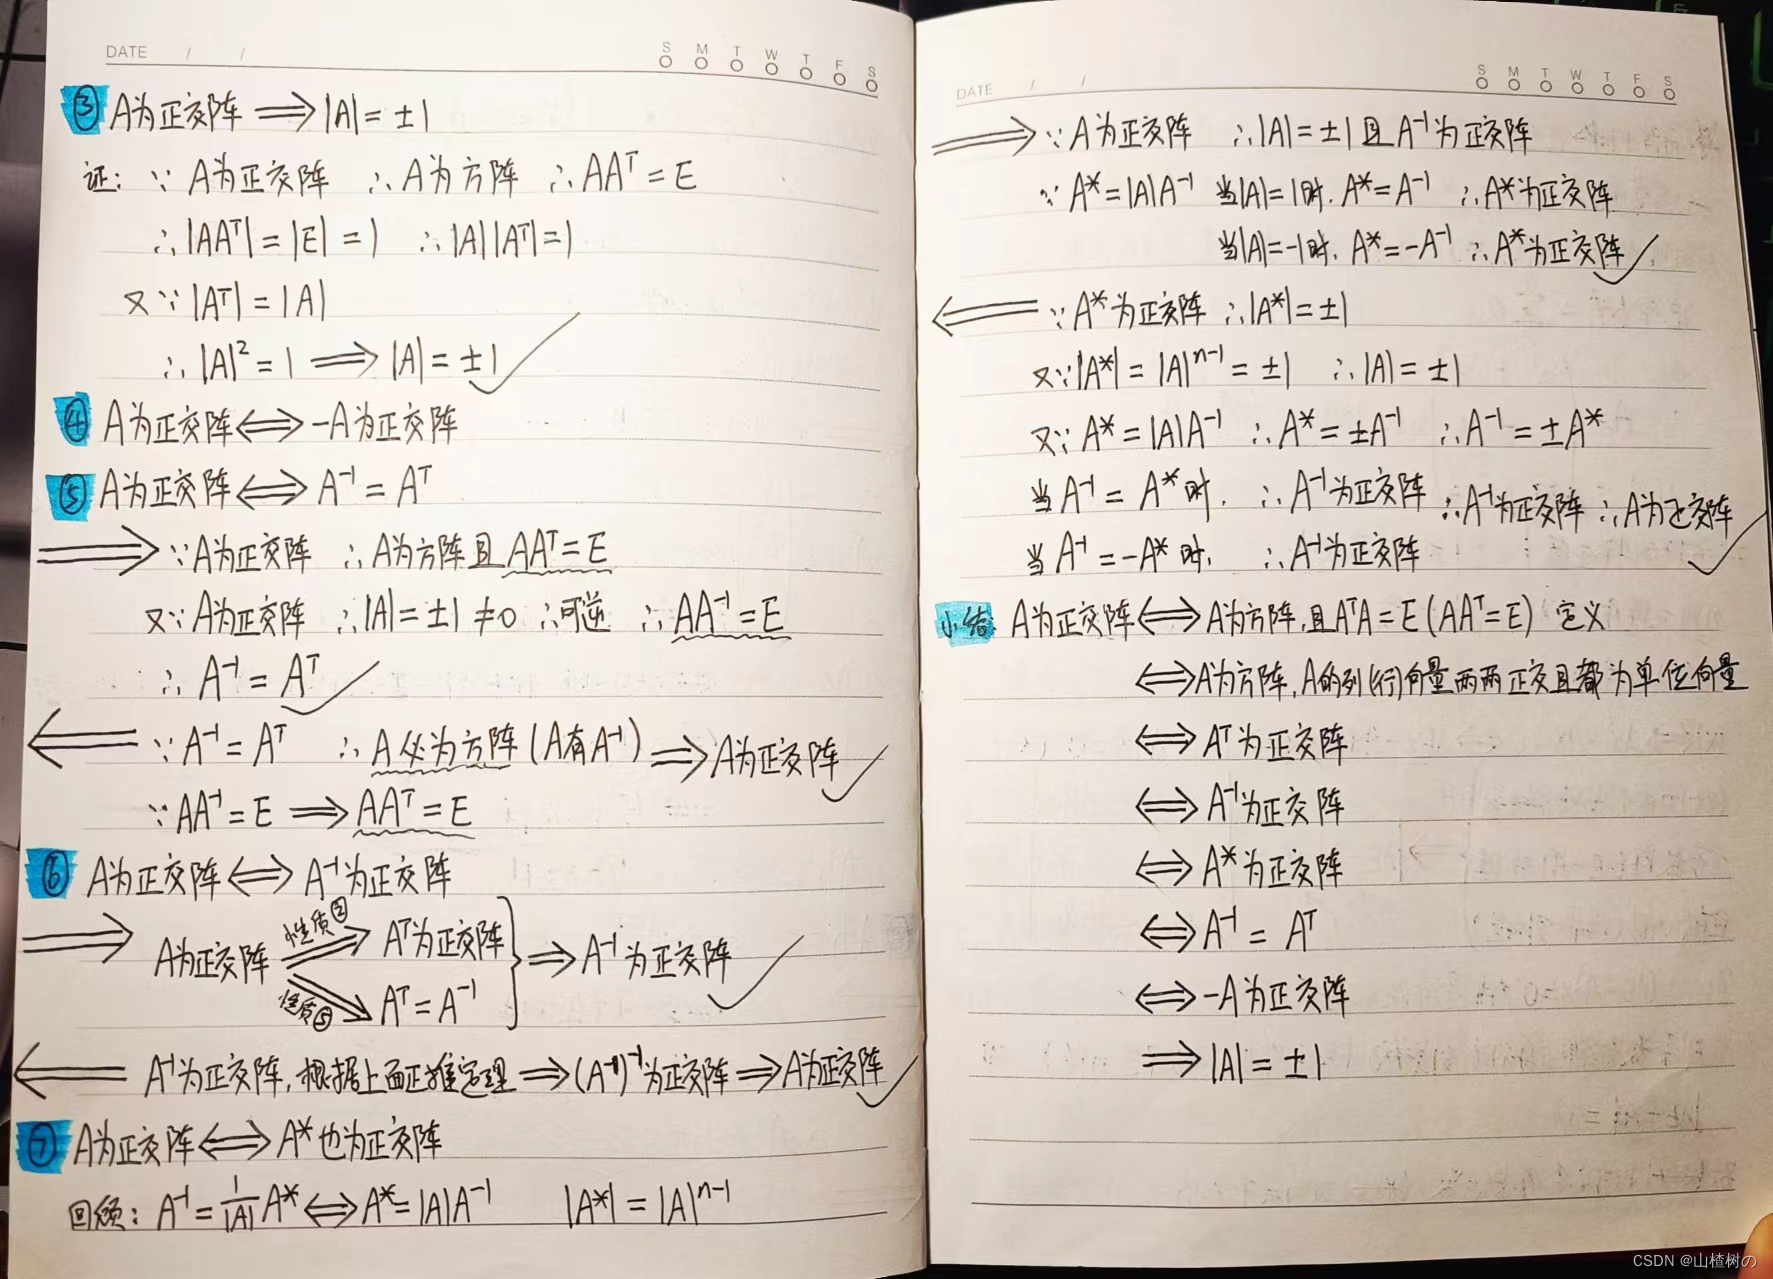 DATE / / S M T W T F S
③ A为正交阵 ⟹ |A| = ±1
证: ∵ A为正交阵 ∴ A为方阵 ∴ AAᵀ = E
∴ |AAᵀ| = |E| = 1 ∴ |A||Aᵀ| = 1
又∵ |Aᵀ| = |A|
∴ |A|² = 1 ⟹ |A| = ±1 ✓
④ A为正交阵 ⟺ -A为正交阵
⑤ A为正交阵 ⟺ A⁻¹ = Aᵀ
⟹ ∵ A为正交阵 ∴ A为方阵且 AAᵀ = E
又∵ A为正交阵 ∴ |A| = ±1 ≠ 0 ∴可逆 ∴ AA⁻¹ = E
∴ A⁻¹ = Aᵀ ✓
⟸ ∵ A⁻¹ = Aᵀ ∴ A必为方阵 (A有A⁻¹) ⟹ A为正交阵 ✓
∵ AA⁻¹ = E ⟹ AAᵀ = E
⑥ A为正交阵 ⟺ A⁻¹为正交阵
⟹ A为正交阵 性质② Aᵀ为正交阵 } ⟹ A⁻¹为正交阵 ✓
性质⑤ Aᵀ = A⁻¹
⟸ A⁻¹为正交阵, 根据上面正推定理 ⟹ (A⁻¹)⁻¹为正交阵 ⟹ A为正交阵 ✓
⑦ A为正交阵 ⟺ A*也为正交阵
回顾: A⁻¹ = 1/|A| A* ⟺ A* = |A|A⁻¹ |A*| = |A|ⁿ⁻¹
DATE / / S M T W T F S
⟹ ∵ A为正交阵 ∴ |A| = ±1 且 A⁻¹为正交阵
∵ A* = |A|A⁻¹ 当|A| = 1时. A* = A⁻¹ ∴ A*为正交阵
当|A| = -1时. A* = -A⁻¹ ∴ A*为正交阵 ✓
⟸ ∵ A*为正交阵 ∴ |A*| = ±1
又∵ |A*| = |A|ⁿ⁻¹ = ±1 ∴ |A| = ±1
又∵ A* = |A|A⁻¹ ∴ A* = ±A⁻¹ ∴ A⁻¹ = ±A*
当 A⁻¹ = A* 时. ∴ A⁻¹为正交阵 ∴ A⁻¹为正交阵 ∴ A为正交阵 ✓
当 A⁻¹ = -A* 时. ∴ A⁻¹为正交阵
小结 A为正交阵 ⟺ A为方阵,且AᵀA = E (AAᵀ = E) 定义
⟺ A为方阵, A的列(行)向量两两正交且都为单位向量
⟺ Aᵀ为正交阵
⟺ A⁻¹为正交阵
⟺ A*为正交阵
⟺ A⁻¹ = Aᵀ
⟺ -A为正交阵
⟹ |A| = ±1
CSDN @山楂树の